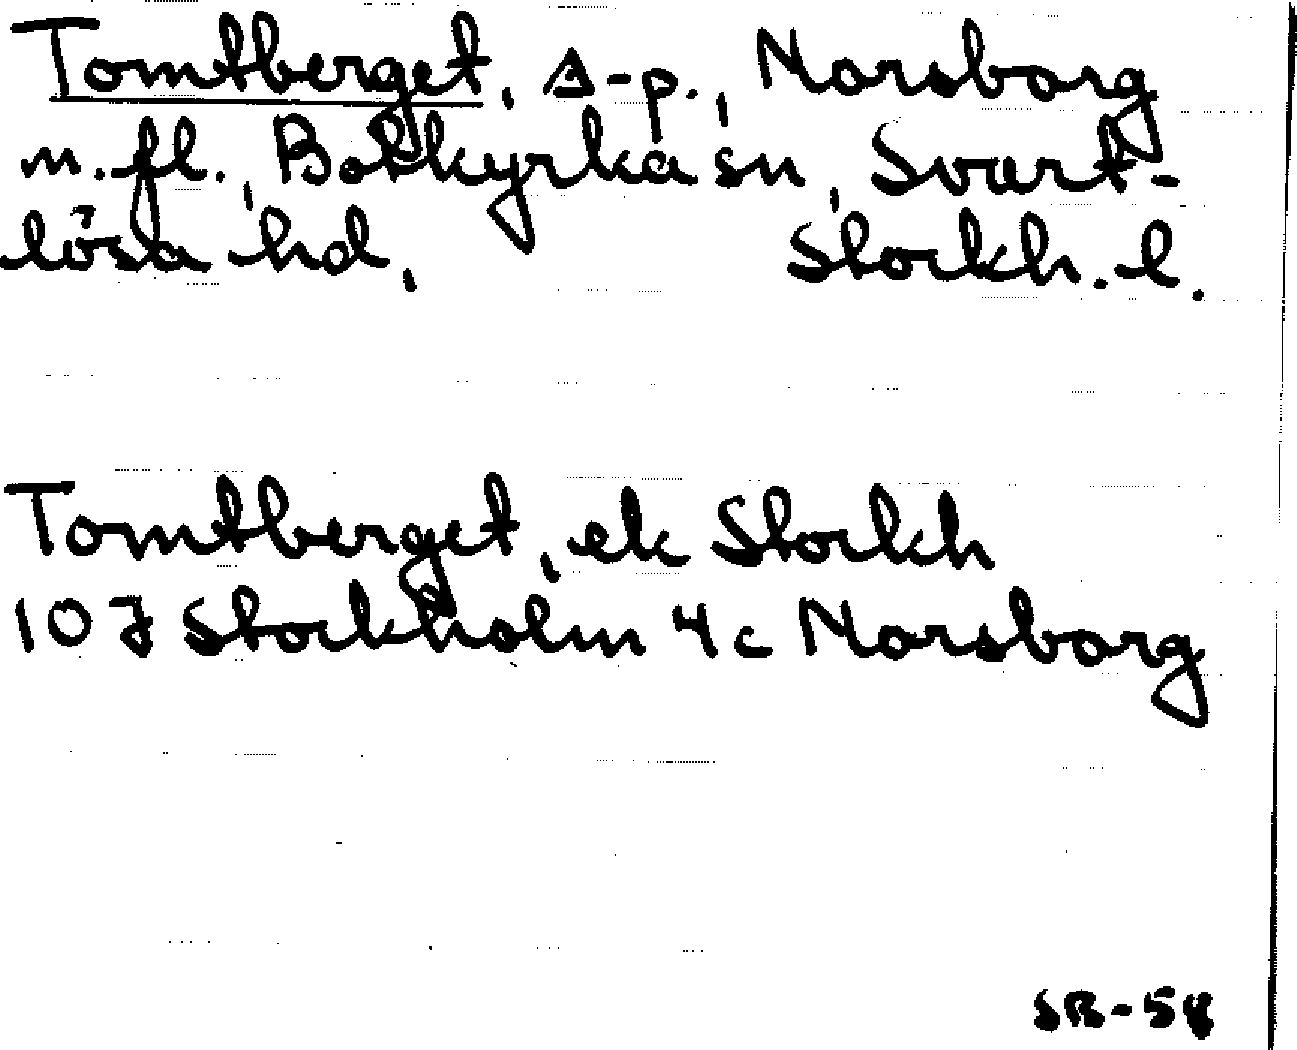 Tomtberget, Δ-p., Norsborg
m.fl., Botkyrka sn, Svart-
lösa hd, Stockh. l.
Tomtberget, ek Stockh
10J Stockholm 4c Norsborg
SR-58